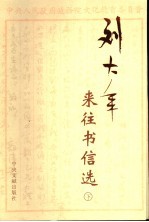 刘大年
来往书信选
下
中央文献出版社